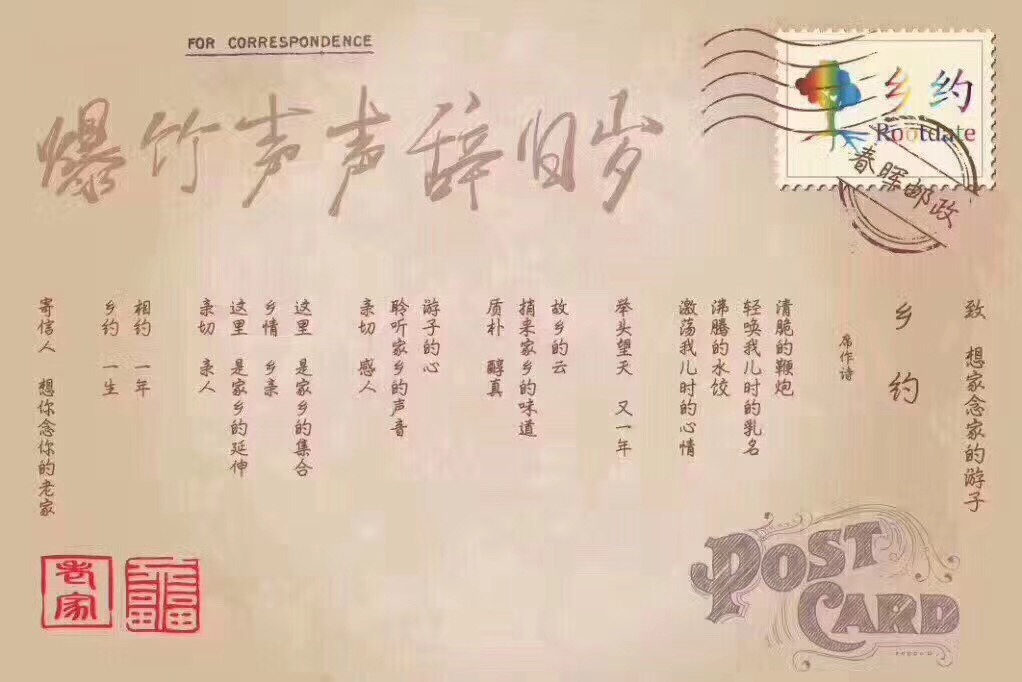 FOR CORRESPONDENCE
爆竹声声辞旧岁
乡约
Rootdate
春晖邮政
致 想家念家的游子
乡约
席作诗
清脆的鞭炮
轻唤我儿时的乳名
沸腾的水饺
激荡我儿时的心情
举头望天 又一年
故乡的云
捎来家乡的味道
质朴 醇真
游子的心
聆听家乡的声音
亲切 感人
这里 是家乡的集合
乡情 乡亲
这里 是家乡的延伸
亲切 亲人
相约 一年
乡约 一生
寄信人 想你念你的老家
老家
POST
CARD